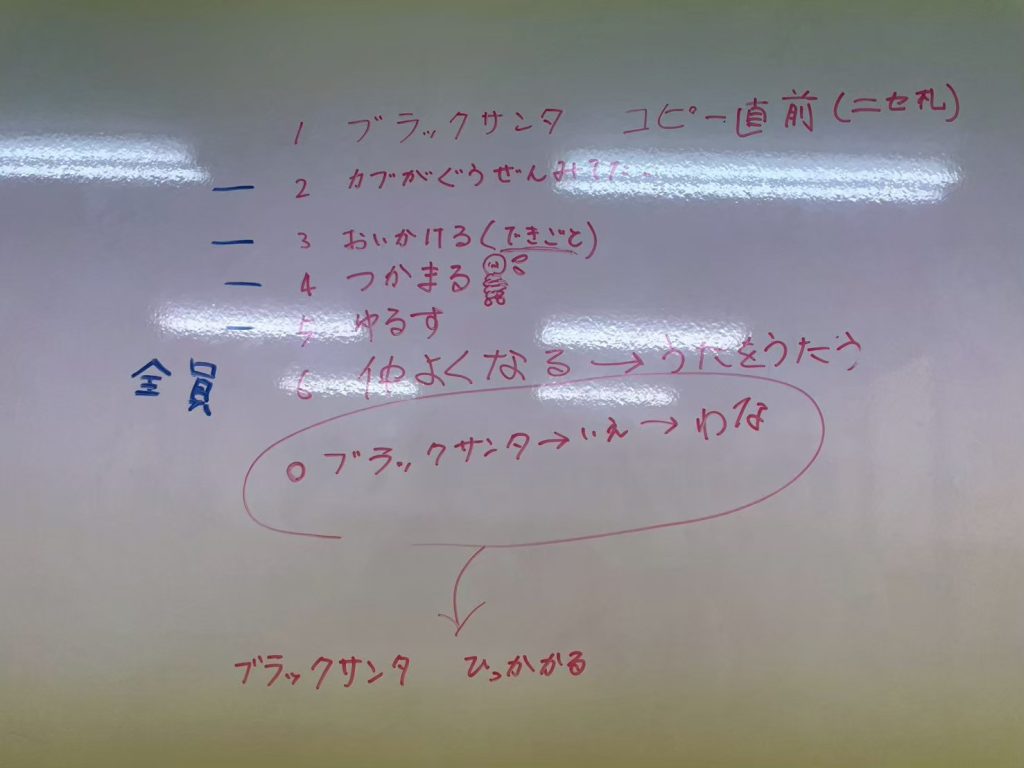 1 ブラックサンタ コピー直前(ニセ札)
2 カブがぐうぜんみ
3 おいかける(できごと)
4 つかまる
5 ゆるす
全員
6 仲よくなる→うたをうたう
○ ブラックサンタ→いえ→わな
ブラックサンタ ひっかかる